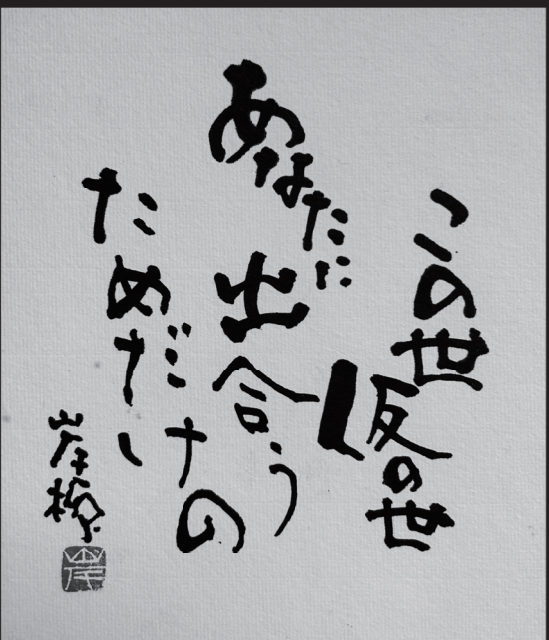 この世仮の世
あなたに
出合う
ためだけの
岸